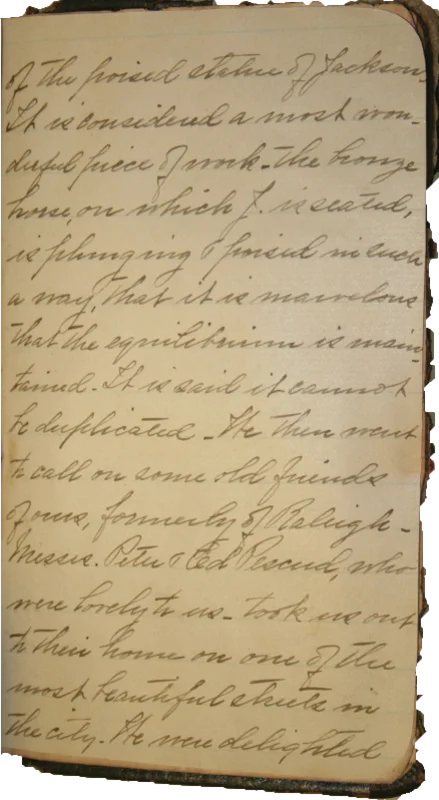 of the poised statue of Jackson.
It is considered a most won-
derful piece of work - the bronze
horse, on which J. is seated,
is plunging & poised in such
a way, that it is marvelous
that the equilibrium is main-
tained. It is said it cannot
be duplicated - We then went
to call on some old friends
of ours, formerly of Raleigh -
Messrs. Peter & Ed Pescud, who
were lovely to us - took us out
to their home on one of the
most beautiful streets in
the city. We were delighted